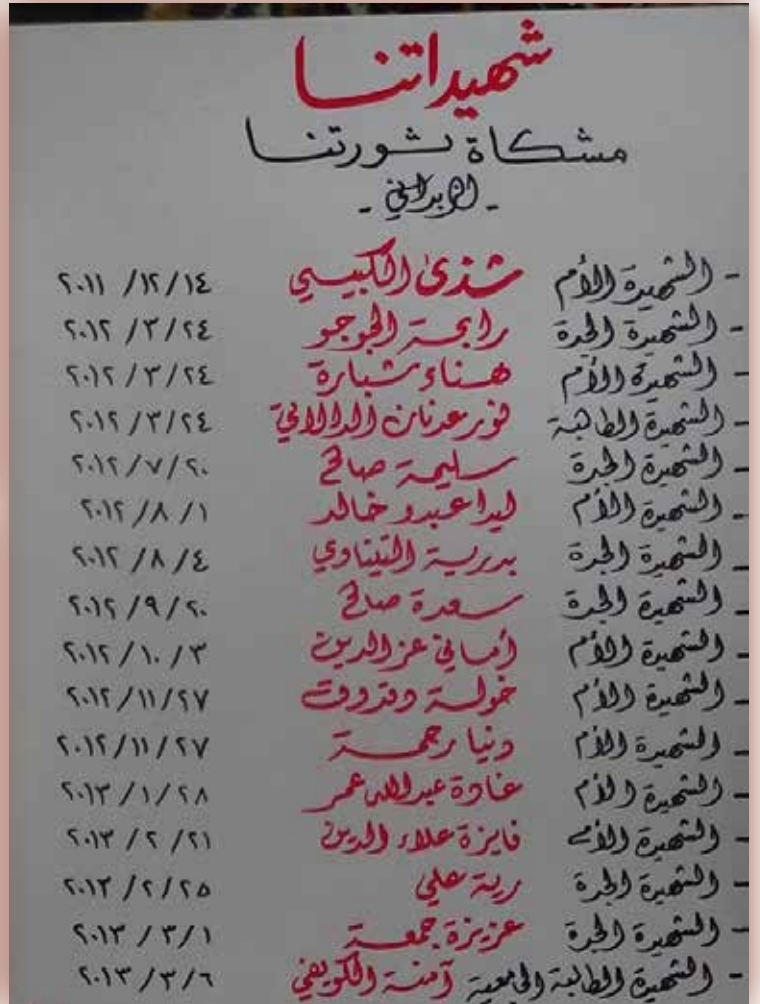 شهيداتنا
مشكاة ثورتنا
- الإبداعي -
- الشهيدة الأم شذى الكبيسي ٢٠١١ /١٢/١٤
- الشهيدة الجدة رابحة الجوجو ٢٠١٢ /٣/٢٤
- الشهيدة الأم هناء شبارة ٢٠١٢ /٣/٢٤
- الشهيدة الطالبة نور عدنان الدالاتي ٢٠١٢ /٣/٢٤
- الشهيدة الجدة سليمة صالح ٢٠١٢ /٧/٢٠
- الشهيدة الأم ليدا عبدو خالد ٢٠١٢ /٨/١
- الشهيدة الجدة بدرية التيناوي ٢٠١٢ /٨/٤
- الشهيدة الجدة سعدة صالح ٢٠١٢ /٩/٢٠
- الشهيدة الأم أماني عز الدين ٢٠١٢ /١٠/٣
- الشهيدة الأم خولة وتروت ٢٠١٢ /١١/٢٧
- الشهيدة الأم دنيا رحمة ٢٠١٢ /١١/٢٧
- الشهيدة الأم غادة عبدالله عمر ٢٠١٣ /١/٢٨
- الشهيدة الأم فايزة علاء الدين ٢٠١٣ /٢/٢١
- الشهيدة الجدة رية علي ٢٠١٣ /٢/٢٥
- الشهيدة الجدة عزيزة جمعة ٢٠١٣ /٣/١
- الشهيدة الطالبة الجامعية آمنة الكويفي ٢٠١٣ /٣/٦